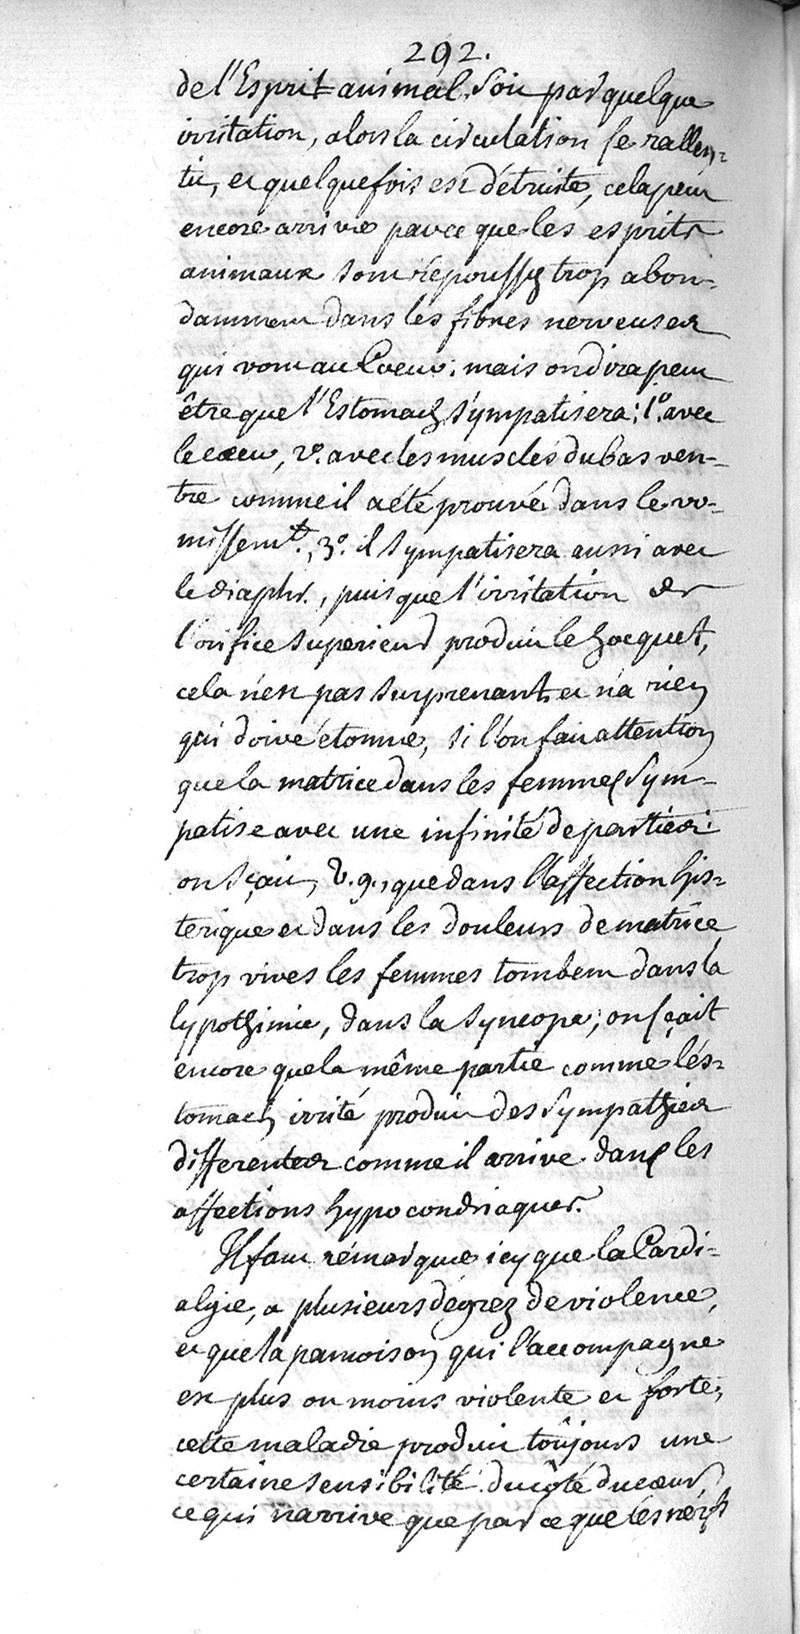 292.
de l'Esprit animal, soit par quelque
irritation, alors la circulation se rallen-
tit, et quelque fois est détruite, cela peut
encore arriver parce que les esprits
animaux sont répoussés trop abon-
damment dans les fibres nerveuses
qui vont au Coeur; mais on dira peut
être que l'Estomach sympatisera: 1.° avec
le coeur, 2.° avec les muscles du bas ven-
tre comme il a été prouvé dans le vo-
missem.t, 3.° il sympatisera aussi avec
le diaphr., puisque l'irritation de
l'orifice superieur produit le hocquet,
cela n'est pas surprenant, et n'a rien
qui doive étonner, si l'on fait attention
que la matrice dans les femmes sym-
patise avec une infinité de parties:
on sçait, v. g., que dans l'affection his-
terique et dans les douleurs de matrice
trop vives les femmes tombent dans la
lypothimie, dans la syncope; on sçait
encore que la même partie comme l'és-
tomach irrité produit des sympathies
differentes comme il arrive dans les
affections hypocondriaques.
Il faut rémarquer icy que la Cardi-
algie, a plusieurs dégrez de violence,
et que la pamoison qui l'accompagne
est plus ou moins violente et forte;
cette maladie produit toûjours une
certaine sensibilité du côté du coeur,
ce qui n'arrive que par ce que les nerfs